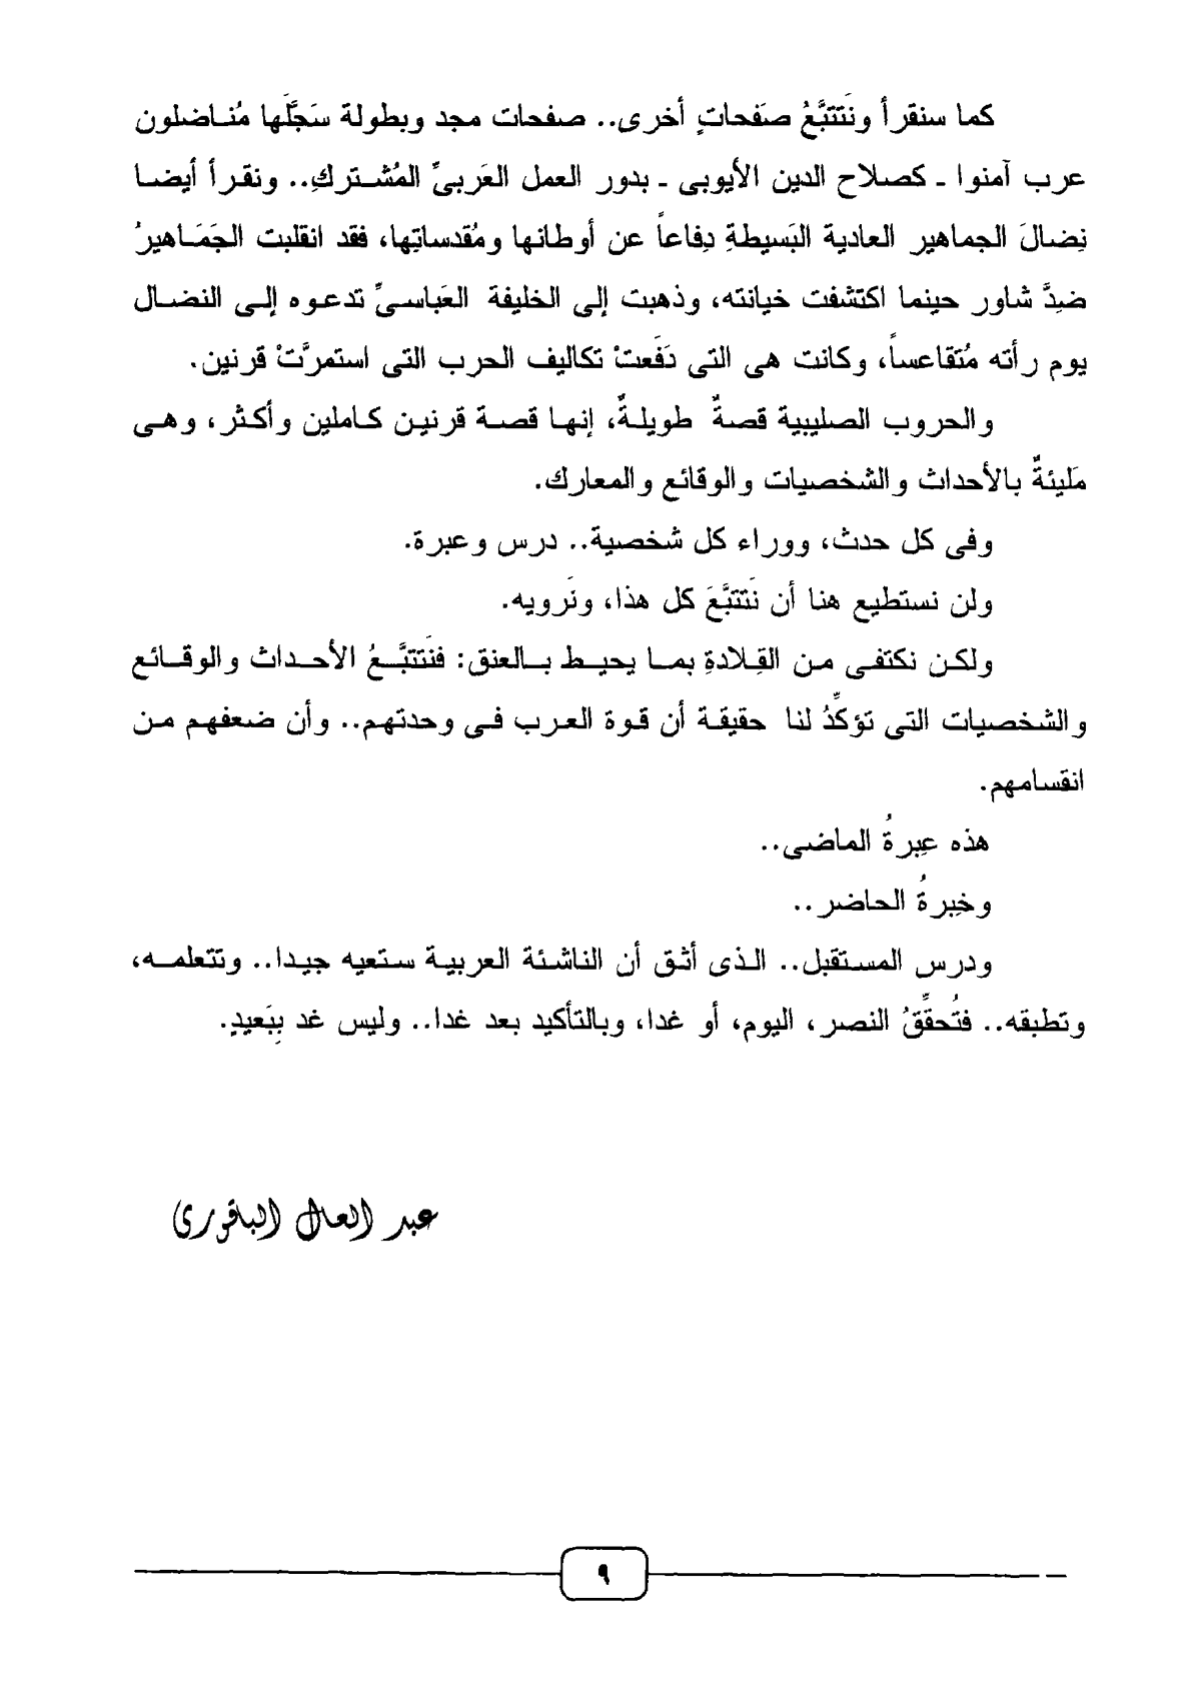 كما سنقرأ ونَتتبَّعُ صفحاتٍ أخرى.. صفحات مجد وبطولة سَجَّلَها مُناضلون
عرب آمنوا ـ كصلاح الدين الأيوبى ـ بدور العمل العَربىِّ المُشتركِ.. ونقرأ أيضا
نِضالَ الجماهير العادية البَسيطةِ دِفاعاً عن أوطانها ومُقدساتِها، فقد انقلبت الجَمَاهيرُ
ضِدَّ شاور حينما اكتشفت خيانته، وذهبت إلى الخليفة العَباسىِّ تدعوه إلى النضال
يوم رأته مُتقاعساً، وكانت هى التى دَفَعتْ تكاليف الحرب التى استمرَّتْ قرنين.
والحروب الصليبية قصةٌ طويلةٌ، إنها قصة قرنين كاملين وأكثر، وهى
مَليئةٌ بالأحداث والشخصيات والوقائع والمعارك.
وفى كل حدث، ووراء كل شخصية.. درس وعبرة.
ولن نستطيع هنا أن نَتتبَّعَ كل هذا، ونَرويه.
ولكن نكتفى من القِلادةِ بما يحيط بالعنق: فنَتتبَّعُ الأحداث والوقائع
والشخصيات التى تؤكِّدُ لنا حقيقة أن قوة العرب فى وحدتهم.. وأن ضعفهم من
انقسامهم.
هذه عِبرةُ الماضى..
وخِبرةُ الحاضر..
ودرس المستقبل.. الذى أثق أن الناشئة العربية ستعيه جيدا.. وتتعلمه،
وتطبقه.. فتُحقِّقُ النصر، اليوم، أو غدا، وبالتأكيد بعد غدا.. وليس غد بِبَعيدٍ.
عبد العال الباقورى
٩